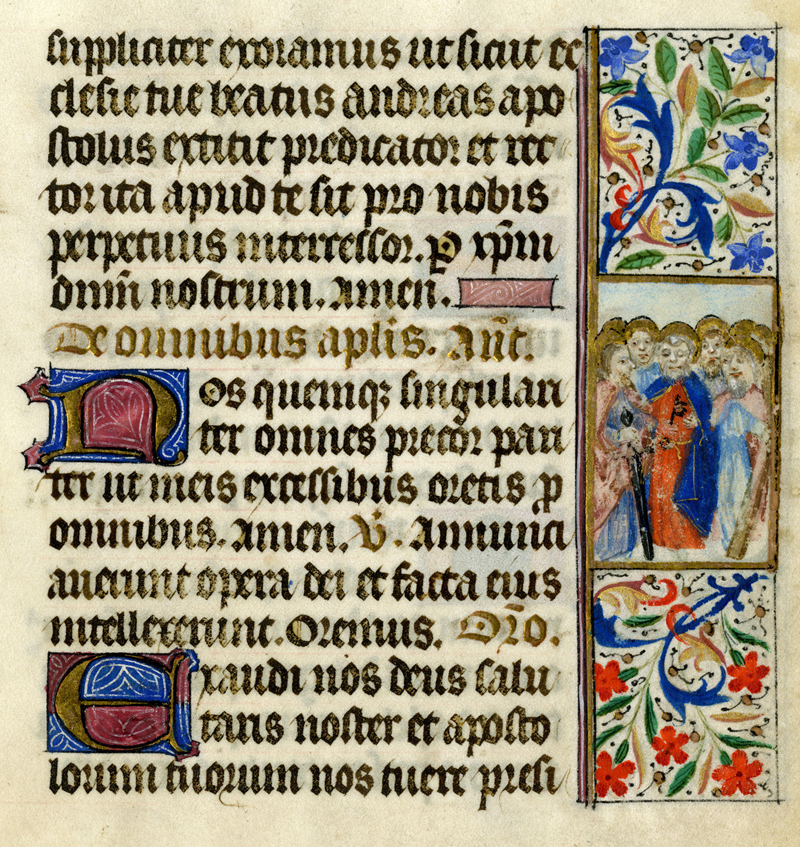 suppliciter exoramus ut sicut ec
clesie tue beatus andreas apo
stolus extitit predicator et rec
tor ita apud te sit pro nobis
perpetuus intercessor. ꝑ xp̄m
dnm̄ nostrum. Amen.
De omnibus aplis̄. Añt.
Nos quemqꝫ singulari
ter omnes precor pari
ter ut meis excessibus oretis ꝓ
omnibus. Amen. V̄. Annunci
auerunt opera dei et facta eius
intellexerunt. Oremus. Or̄o.
Exaudi nos deus salu
taris noster et aposto
lorum tuorum nos tuere presi